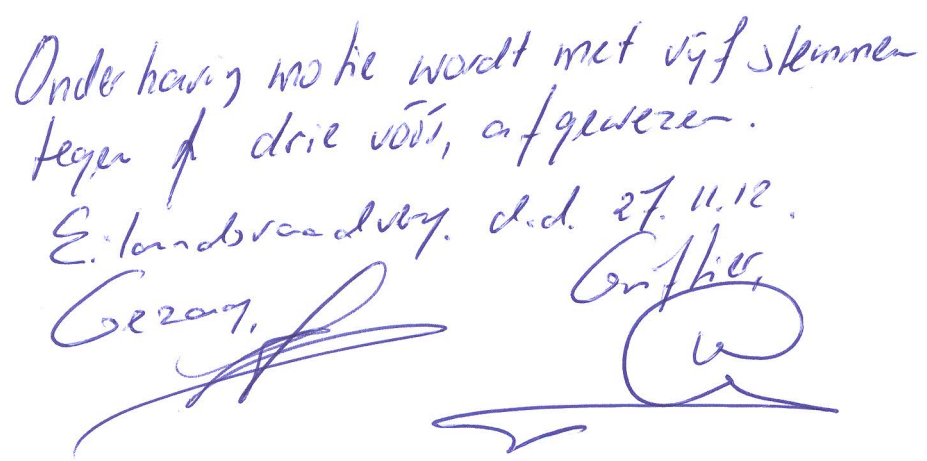 Onderhavig motie wordt met vijf stemmen
tegen drie vóór, afgewezen.
Eilandsraadverg. d.d. 27.11.12.
Gezag, Griffier,